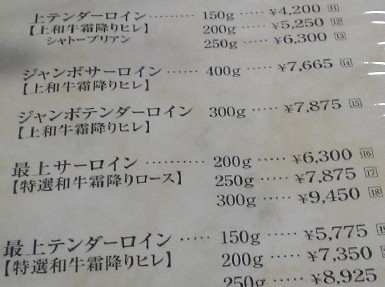 上テンダーロイン…… 150g ‥‥ ¥4,200 11
【上和牛霜降りヒレ】 200g ‥‥ ¥5,250 12
シャトーブリアン 250g ‥‥ ¥6,300 13
ジャンボサーロイン…… 400g ‥‥ ¥7,665 14
【上和牛霜降りヒレ】
ジャンボテンダーロイン 300g ‥‥ ¥7,875 15
【上和牛霜降りヒレ】
最上サーロイン ……… 200g ‥‥ ¥6,300 16
【特選和牛霜降りロース】 250g ‥‥ ¥7,875 17
300g ‥‥ ¥9,450 18
最上テンダーロイン ‥‥ 150g ‥‥ ¥5,775
【特選和牛霜降りヒレ】 200g ‥‥ ¥7,350
250g ‥‥ ¥8,925